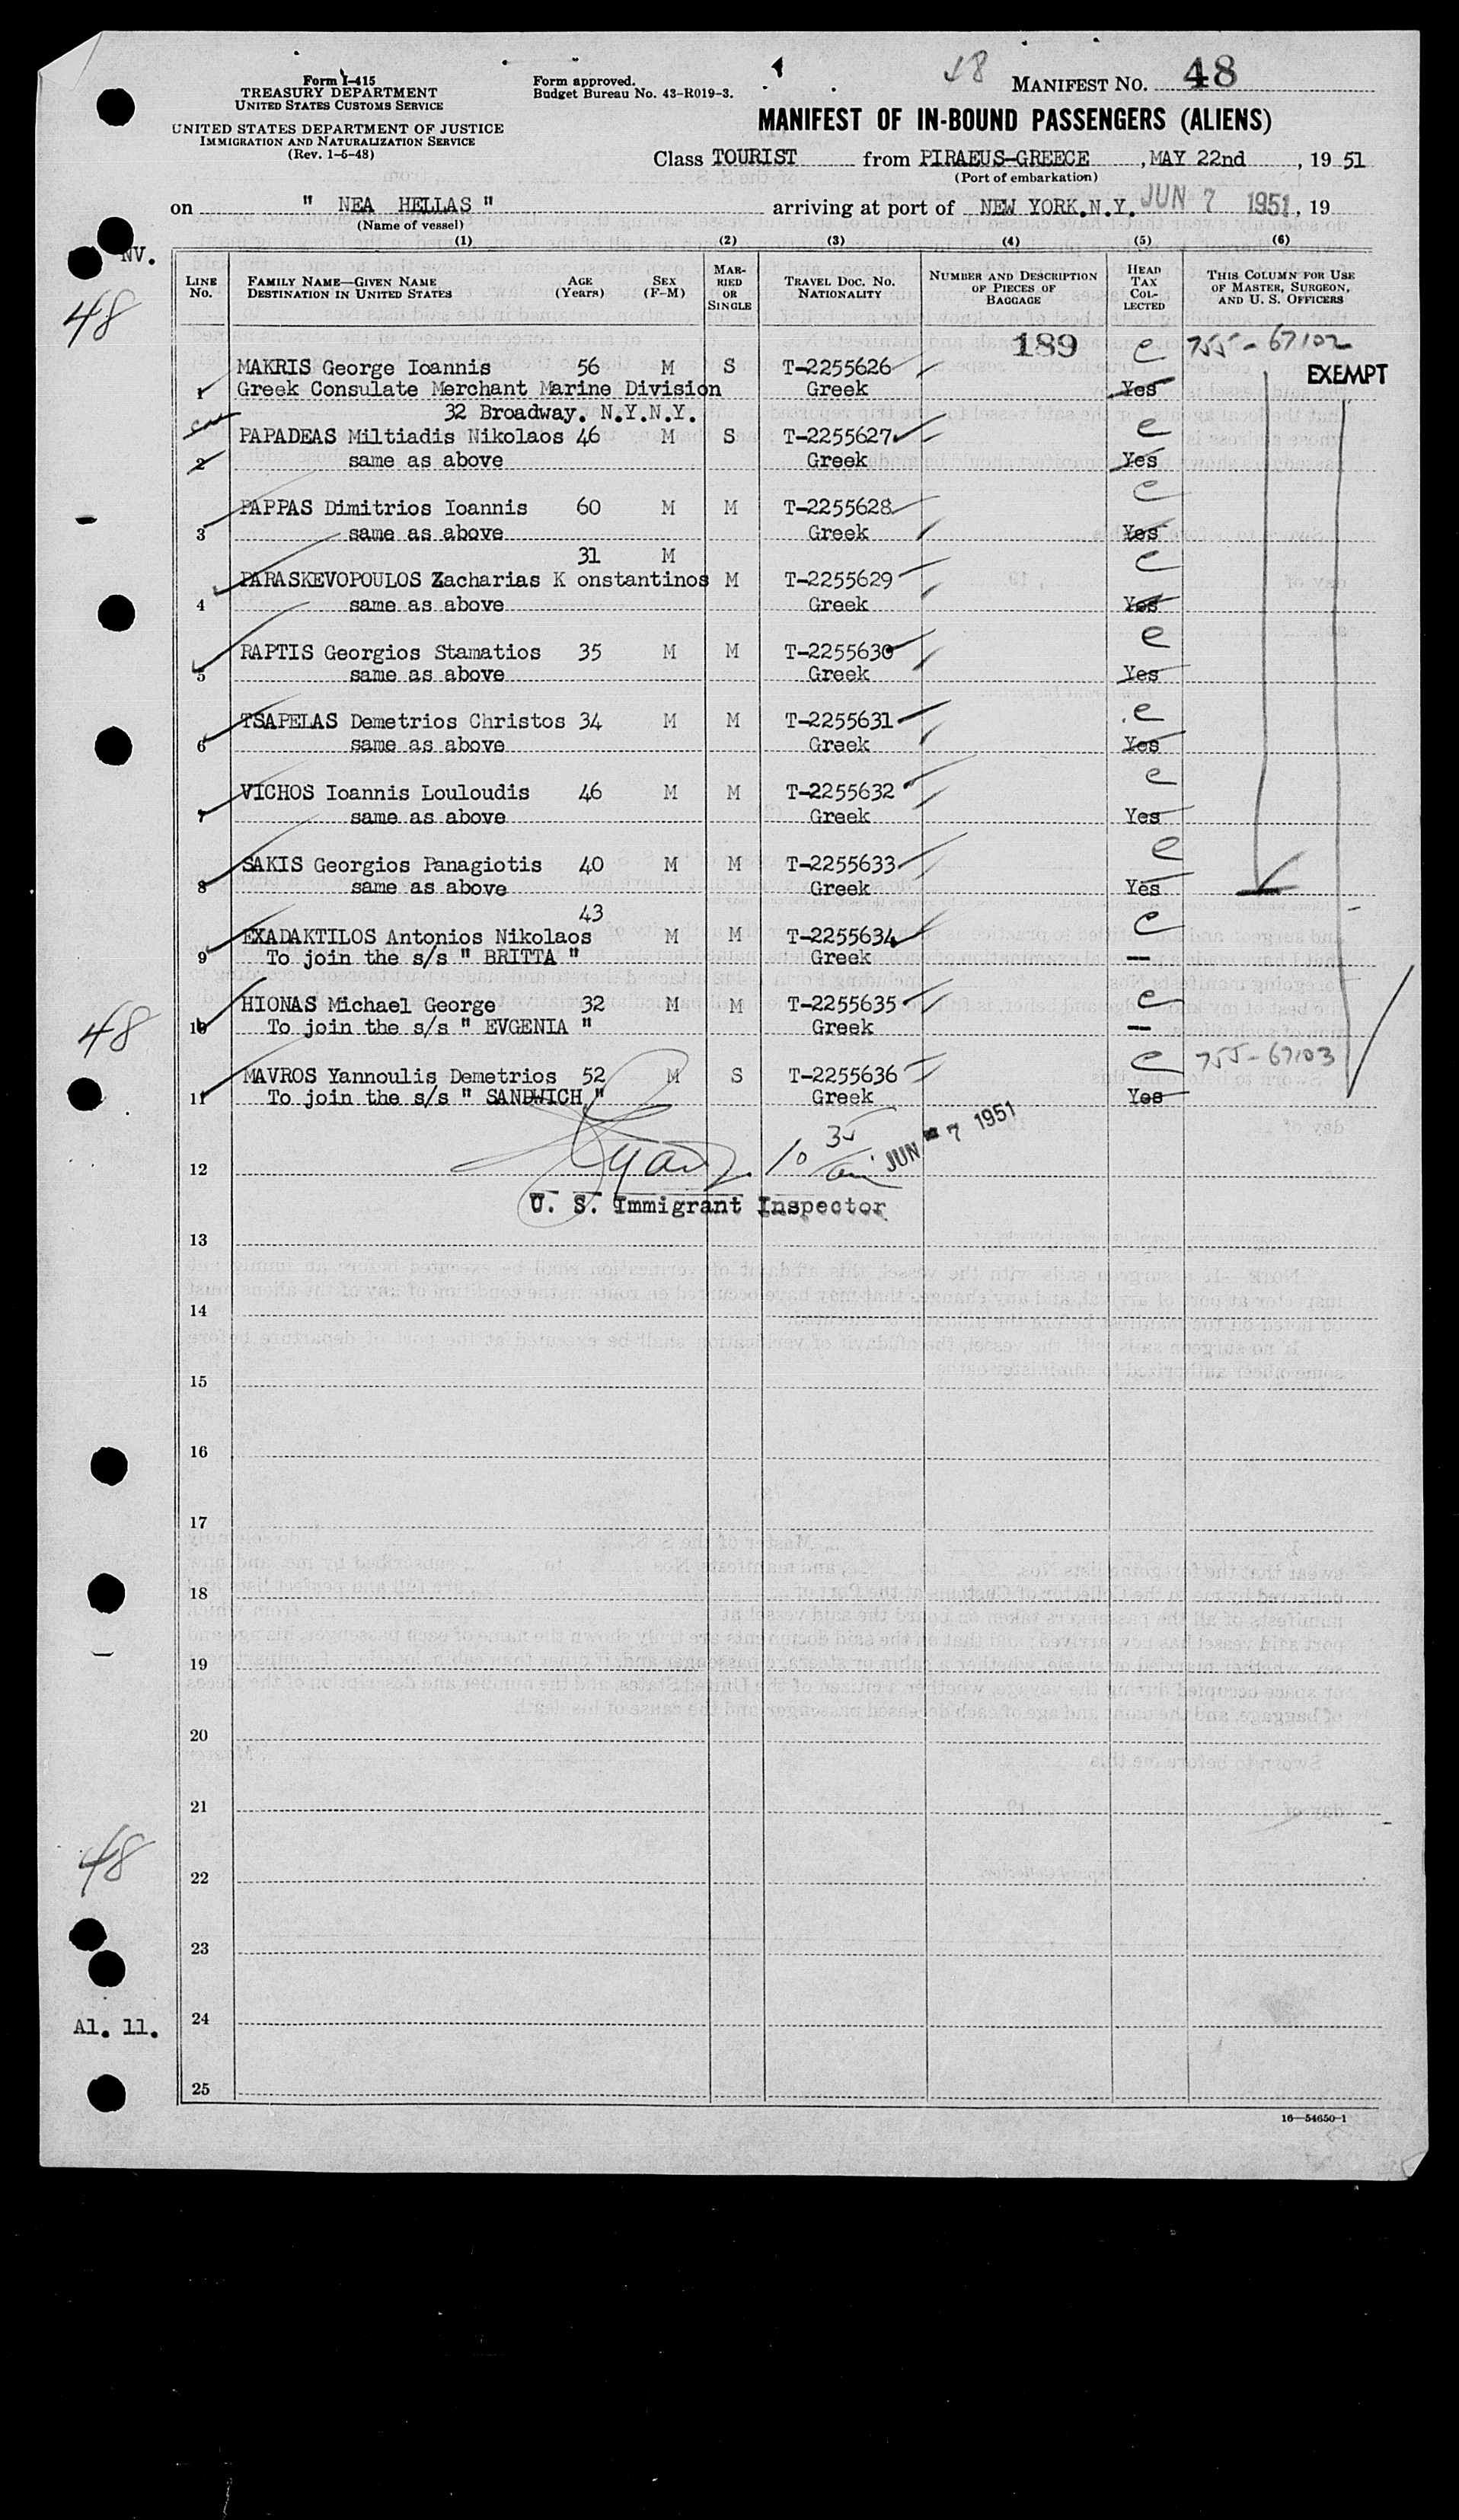 Form I-415
TREASURY DEPARTMENT
UNITED STATES CUSTOMS SERVICE
UNITED STATES DEPARTMENT OF JUSTICE
IMMIGRATION AND NATURALIZATION SERVICE
(Rev. 1-5-48)
Form approved.
Budget Bureau No. 43-R019-3.
48 MANIFEST NO. 48
MANIFEST OF IN-BOUND PASSENGERS (ALIENS)
Class TOURIST from PIRAEUS-GREECE, MAY 22nd, 19 51
(Port of embarkation)
on " NEA HELLAS " arriving at port of NEW YORK.N.Y. JUN 7 1951, 19
(Name of vessel)
NV.
48
(1) (2) (3) (4) (5) (6)
LINE No. FAMILY NAME—GIVEN NAME DESTINATION IN UNITED STATES AGE (Years) SEX (F-M) MARRIED OR SINGLE TRAVEL DOC. NO. NATIONALITY NUMBER AND DESCRIPTION OF PIECES OF BAGGAGE HEAD TAX COLLECTED THIS COLUMN FOR USE OF MASTER, SURGEON, AND U. S. OFFICERS
189 e 755-67102
EXEMPT
MAKRIS George Ioannis 56 M S T-2255626
1 Greek Consulate Merchant Marine Division Greek Yes
32 Broadway. N.Y.N.Y.
PAPADEAS Miltiadis Nikolaos 46 M S T-2255627 e
2 same as above Greek Yes
PAPPAS Dimitrios Ioannis 60 M M T-2255628 e
3 same as above Greek Yes
31 M
PARASKEVOPOULOS Zacharias K onstantinos M T-2255629 e
4 same as above Greek Yes
RAPTIS Georgios Stamatios 35 M M T-2255630 e
5 same as above Greek Yes
TSAPELAS Demetrios Christos 34 M M T-2255631 e
6 same as above Greek Yes
VICHOS Ioannis Louloudis 46 M M T-2255632 e
7 same as above Greek Yes
SAKIS Georgios Panagiotis 40 M M T-2255633 e
8 same as above Greek Yes
43
EXADAKTILOS Antonios Nikolaos M M T-2255634 e
9 To join the s/s " BRITTA " Greek —
HIONAS Michael George 32 M M T-2255635 e
10 To join the s/s " EVGENIA " Greek —
48
MAVROS Yannoulis Demetrios 52 M S T-2255636 e 755-67103
11 To join the s/s " SANDWICH " Greek Yes
10 35 am JUN 7 1951
12
U. S. Immigrant Inspector
13
14
15
16
17
18
19
20
21
48
22
23
24
Al. 11.
25
16—54650-1